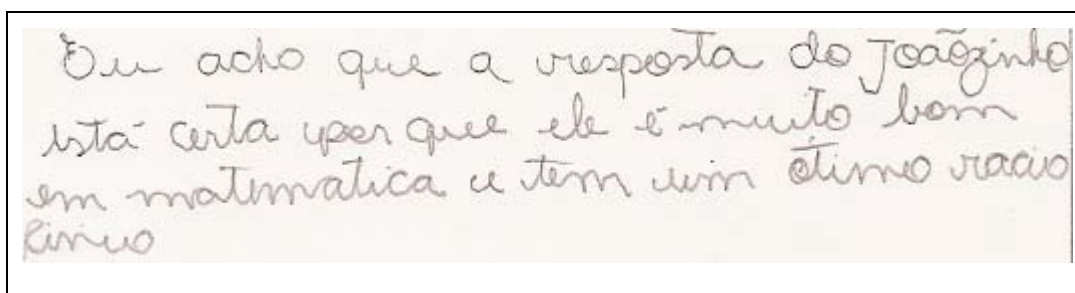 Eu acho que a resposta do Joãozinho
está certa por que ele é muito bom
em matematica e tem um ótimo racio
cinio